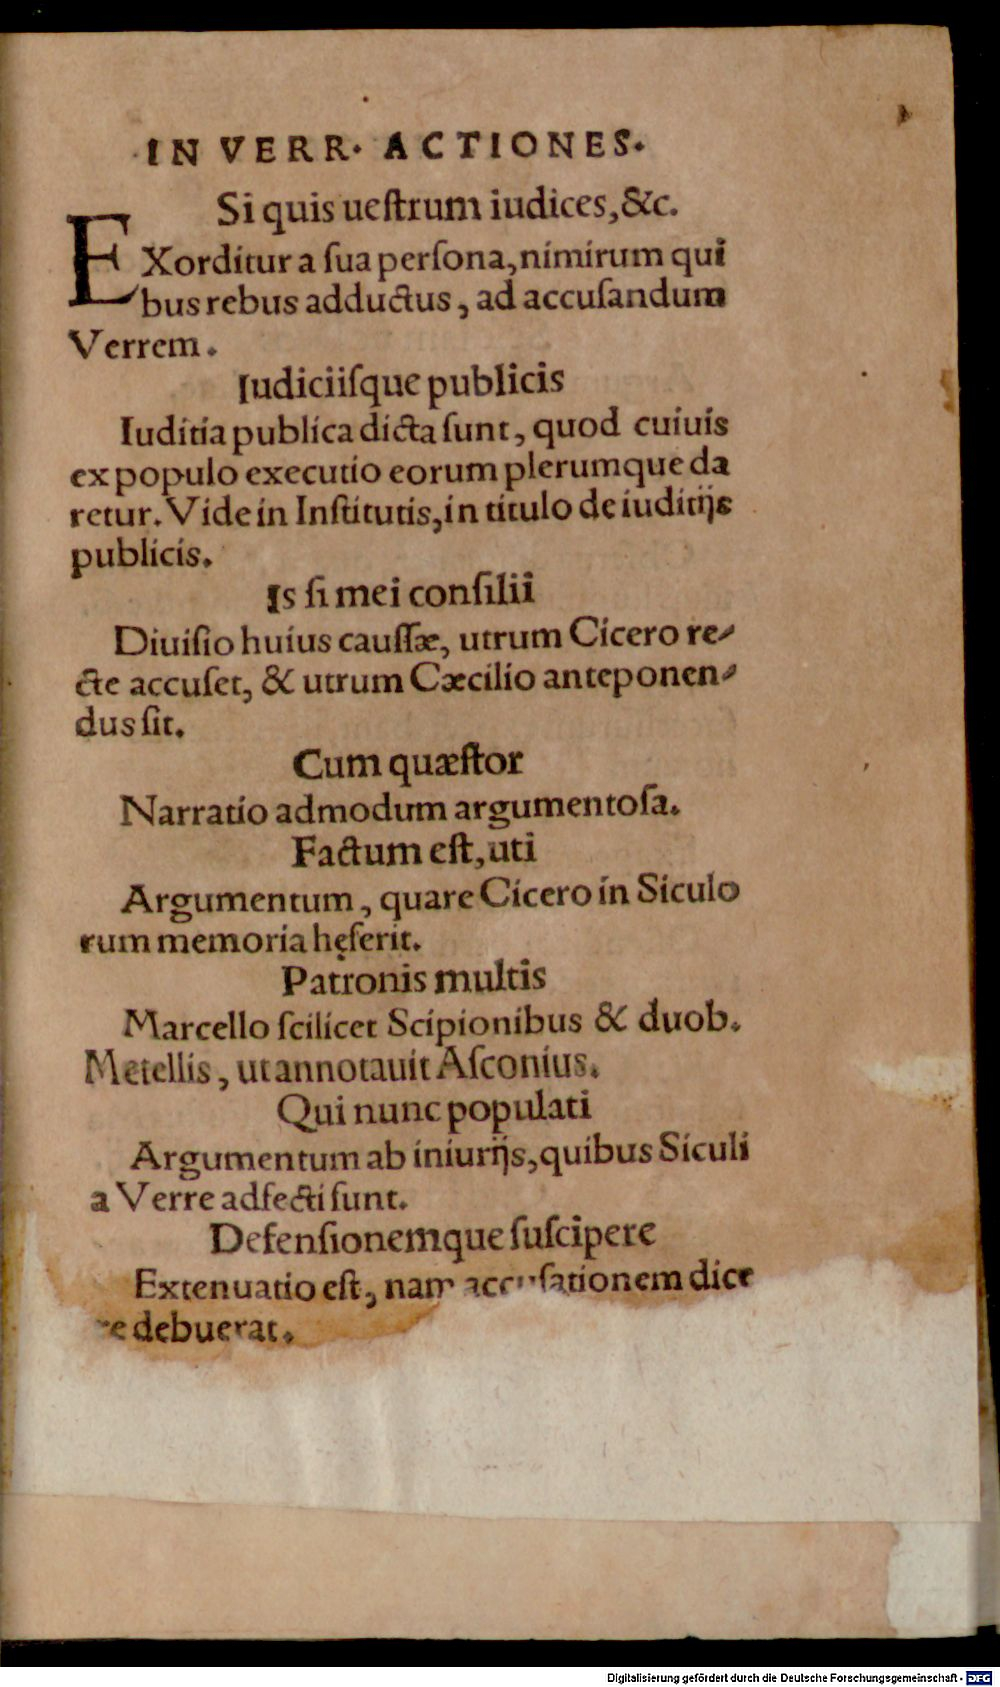 IN VERR. ACTIONES.
Si quis ueſtrum iudices,&c.
EXorditur a ſua perſona,nimirum qui
bus rebus adductus, ad accuſandum
Verrem.
Iudiciiſque publicis
Iuditia publica dicta ſunt, quod cuiuis
ex populo executio eorum plerumque da
retur. Vide in Inſtitutis,in titulo de iuditijs
publicis.
Is ſi mei conſilii
Diuiſio huius cauſſæ, utrum Cicero re-
cte accuſet, & utrum Cæcilio anteponen-
dus ſit.
Cum quæſtor
Narratio admodum argumentoſa.
Factum eſt,uti
Argumentum, quare Cicero in Siculo
rum memoria hęſerit.
Patronis multis
Marcello ſcilicet Scipionibus & duob.
Metellis, ut annotauit Aſconius.
Qui nunc populati
Argumentum ab iniurijs,quibus Siculi
a Verre adfecti ſunt.
Defenſionemque ſuſcipere
Extenuatio eſt, nam accuſationem dice
re debuerat.
Digitalisierung gefördert durch die Deutsche Forschungsgemeinschaft - DFG